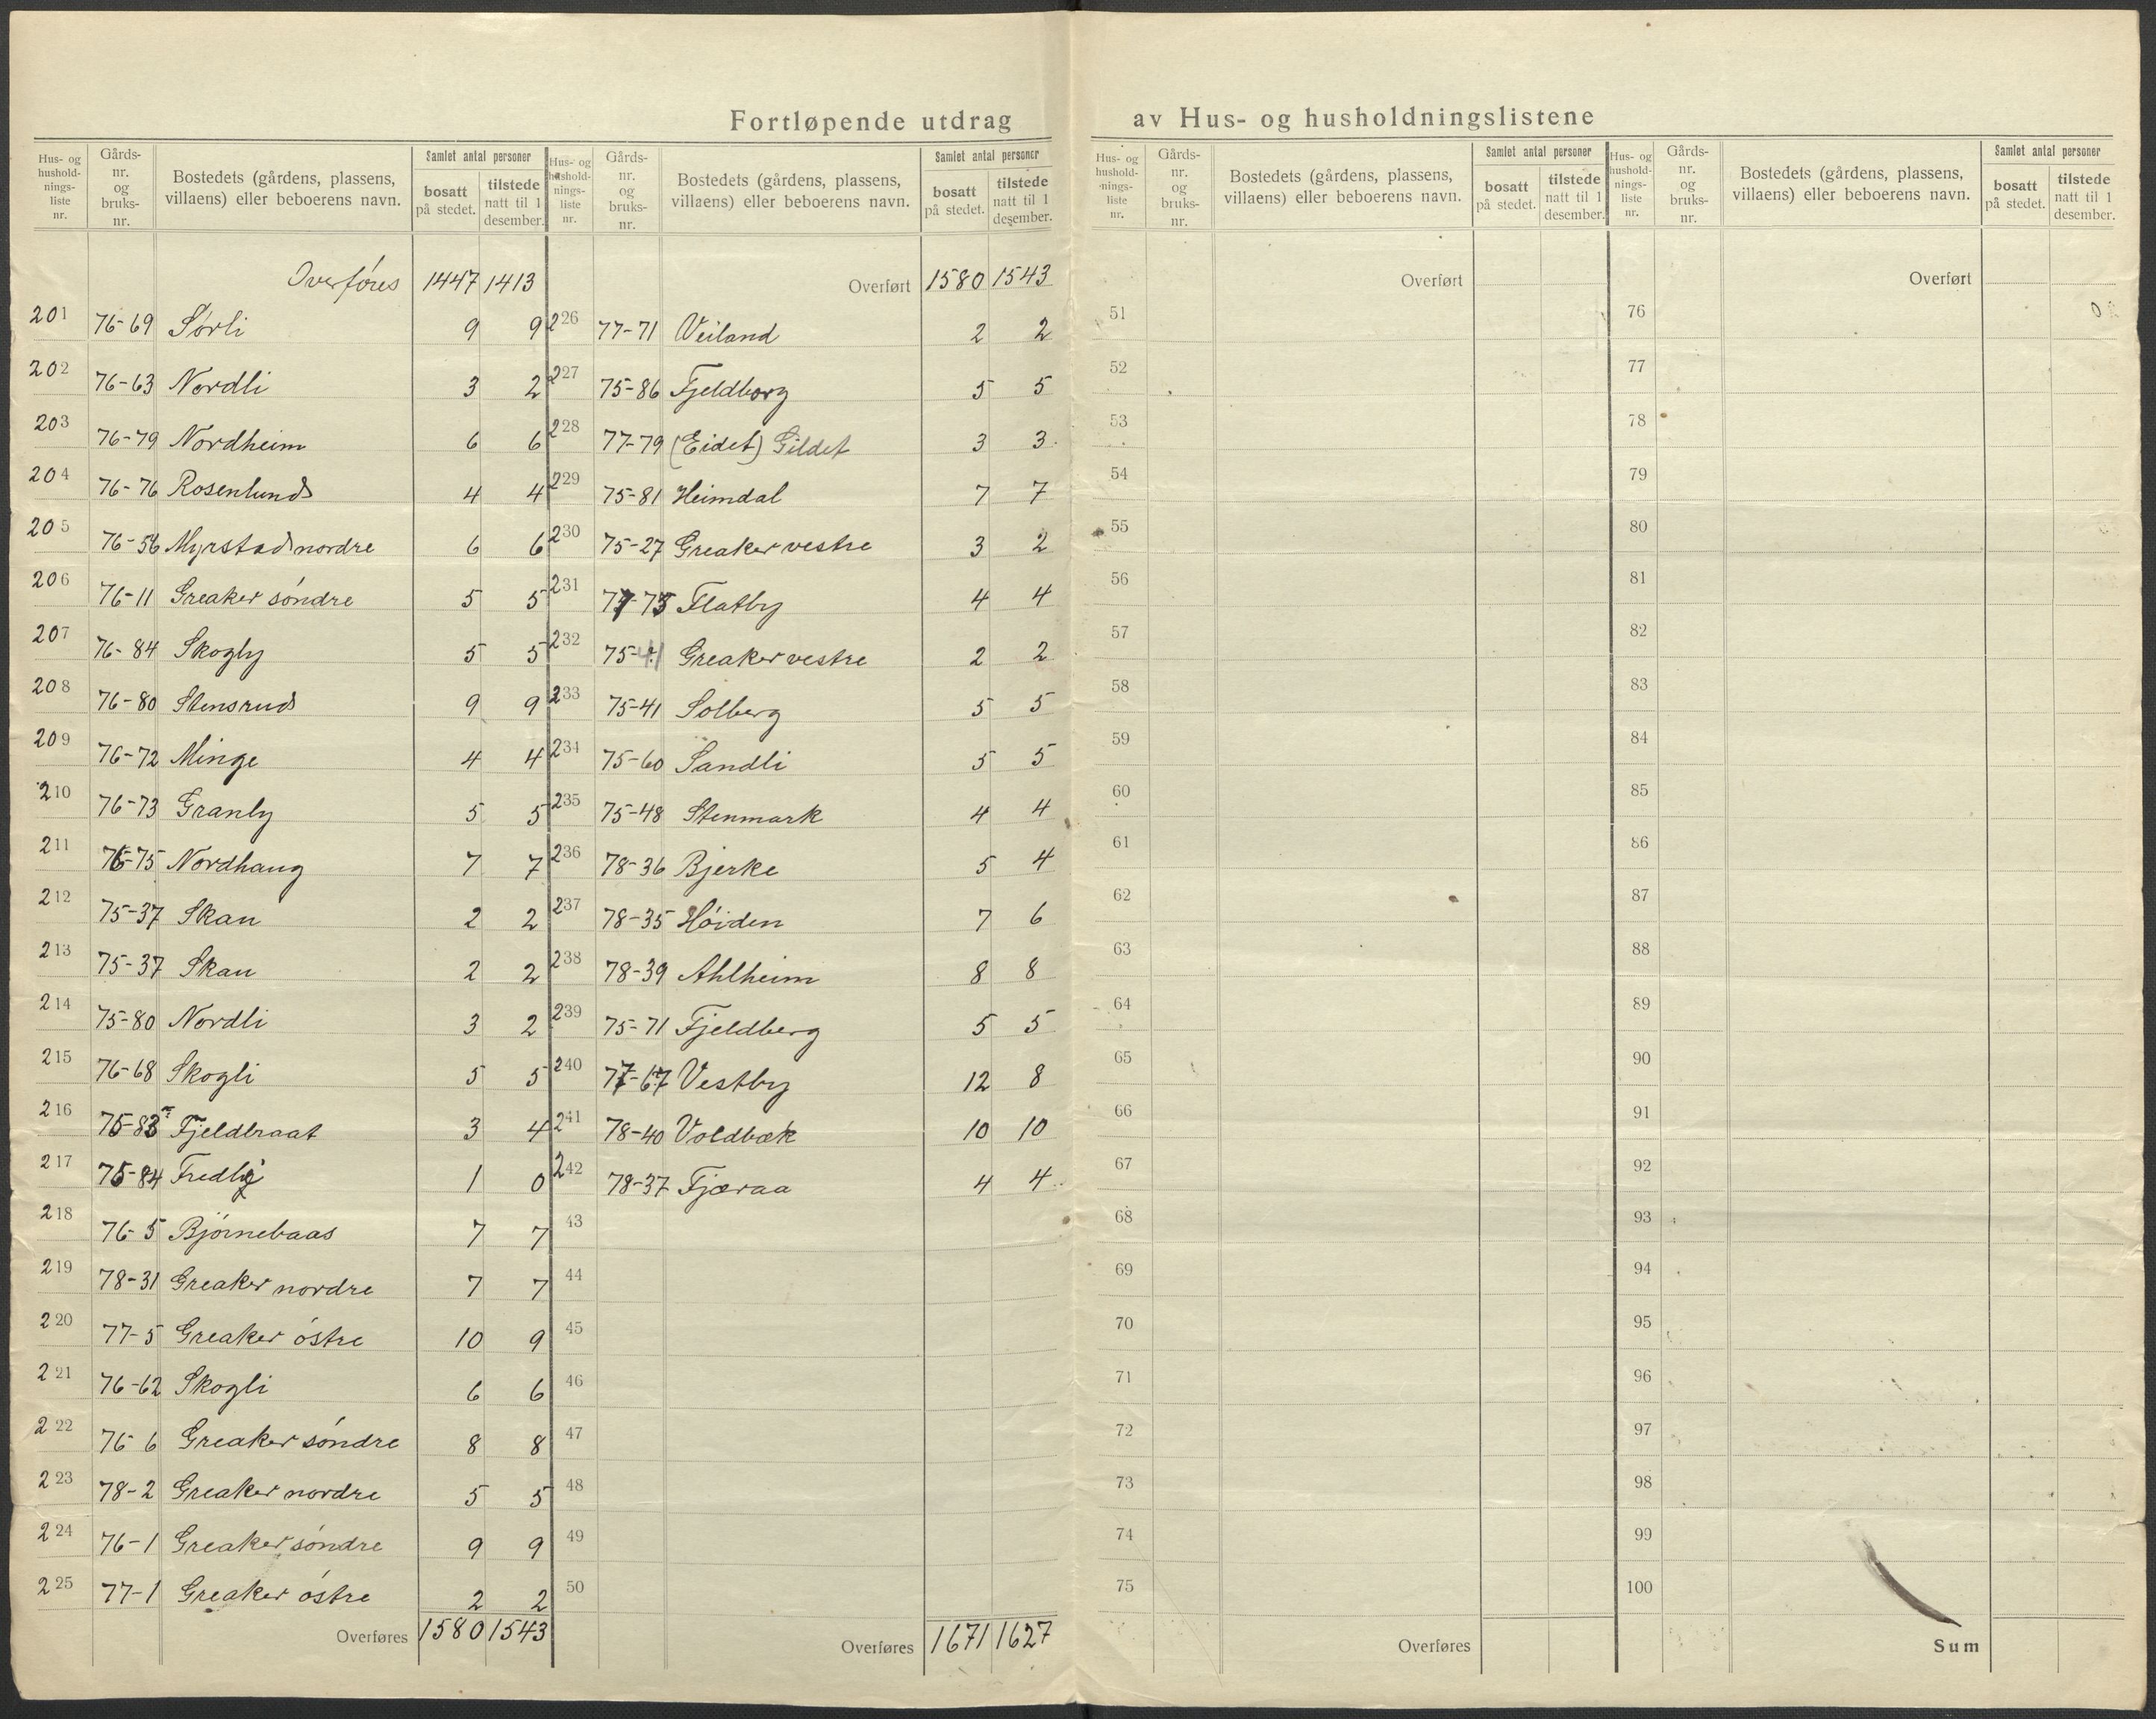 Fortløpende utdrag av Hus- og husholdningslistene
Hus- og hushold-nings-liste nr. Gårds-nr. og bruks-nr. Bostedets (gårdens, plassens, villaens) eller beboerens navn. Samlet antal personer bosatt på stedet. tilstede natt til 1 desember.
Overføres 1447 1413
201 76-69 Sørli 9 9
202 76-63 Nordli 3 2
203 76-79 Nordheim 6 6
204 76-76 Rosenlund 4 4
205 76-56 Myrstad nordre 6 6
206 76-11 Greaker søndre 5 5
207 76-84 Skogly 5 5
208 76-80 Stensrud 9 9
209 76-72 Minge 4 4
210 76-73 Granly 5 5
211 76-75 Nordhaug 7 7
212 75-37 Skau 2 2
213 75-37 Skau 2 2
214 75-80 Nordli 3 2
215 76-68 Skogli 5 5
216 75-83 Fjeldbraat 3 4
217 75-84 Fredly 1 0
218 76-5 Bjørnebaas 7 7
219 78-31 Greaker nordre 7 7
220 77-5 Greaker østre 10 9
221 76-62 Skogli 6 6
222 76-6 Greaker søndre 8 8
223 78-2 Greaker nordre 5 5
224 76-1 Greaker søndre 9 9
225 77-1 Greaker østre 2 2
Overføres 1580 1543
Hus- og hushold-nings-liste nr. Gårds-nr. og bruks-nr. Bostedets (gårdens, plassens, villaens) eller beboerens navn. Samlet antal personer bosatt på stedet. tilstede natt til 1 desember.
Overført 1580 1543
226 77-71 Veiland 2 2
227 75-86 Fjeldborg 5 5
228 77-79 (Eidet) Gildet 3 3
229 75-81 Heimdal 7 7
230 75-27 Greaker vestre 3 2
231 77-75 Flatby 4 4
232 75-41 Greaker vestre 2 2
233 75-41 Solberg 5 5
234 75-60 Sandli 5 5
235 75-48 Stenmark 4 4
236 78-36 Bjerke 5 4
237 78-35 Høiden 7 6
238 78-39 Ahlheim 8 8
239 75-71 Fjeldberg 5 5
240 77-67 Vestby 12 8
241 78-40 Voldbæk 10 10
242 78-37 Fjæraa 4 4
43
44
45
46
47
48
49
50
Overføres 1671 1627
Hus- og hushold-nings-liste nr. Gårds-nr. og bruks-nr. Bostedets (gårdens, plassens, villaens) eller beboerens navn. Samlet antal personer bosatt på stedet. tilstede natt til 1 desember.
Overført
51
52
53
54
55
56
57
58
59
60
61
62
63
64
65
66
67
68
69
70
71
72
73
74
75
Overføres
Hus- og hushold-nings-liste nr. Gårds-nr. og bruks-nr. Bostedets (gårdens, plassens, villaens) eller beboerens navn. Samlet antal personer bosatt på stedet. tilstede natt til 1 desember.
Overført
76
77
78
79
80
81
82
83
84
85
86
87
88
89
90
91
92
93
94
95
96
97
98
99
100
Sum